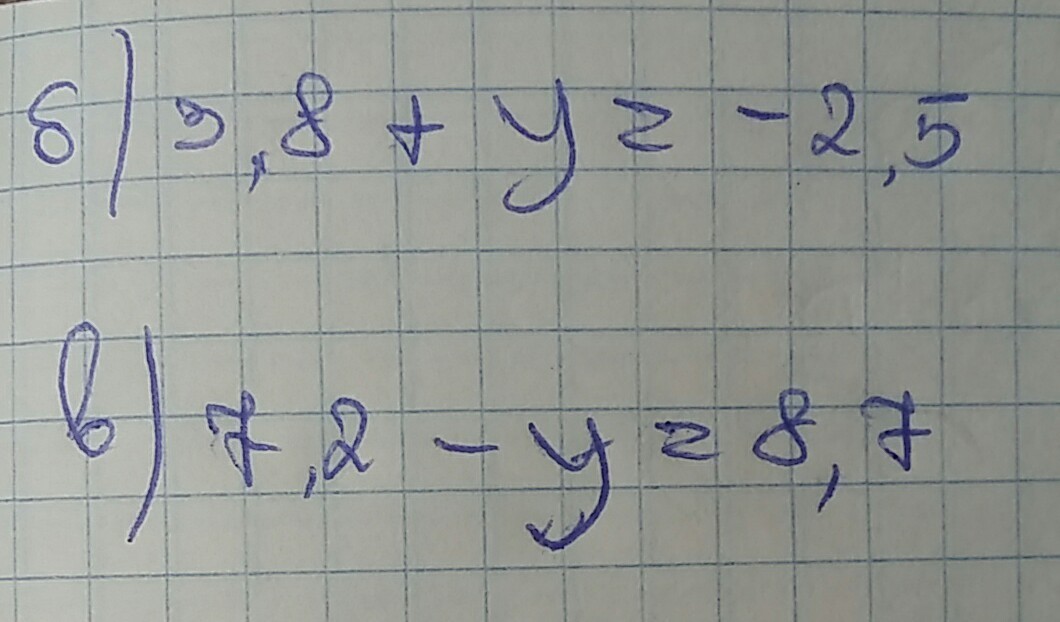 б) 3,8 + y = -2,5
в) 7,2 - y = 8,7